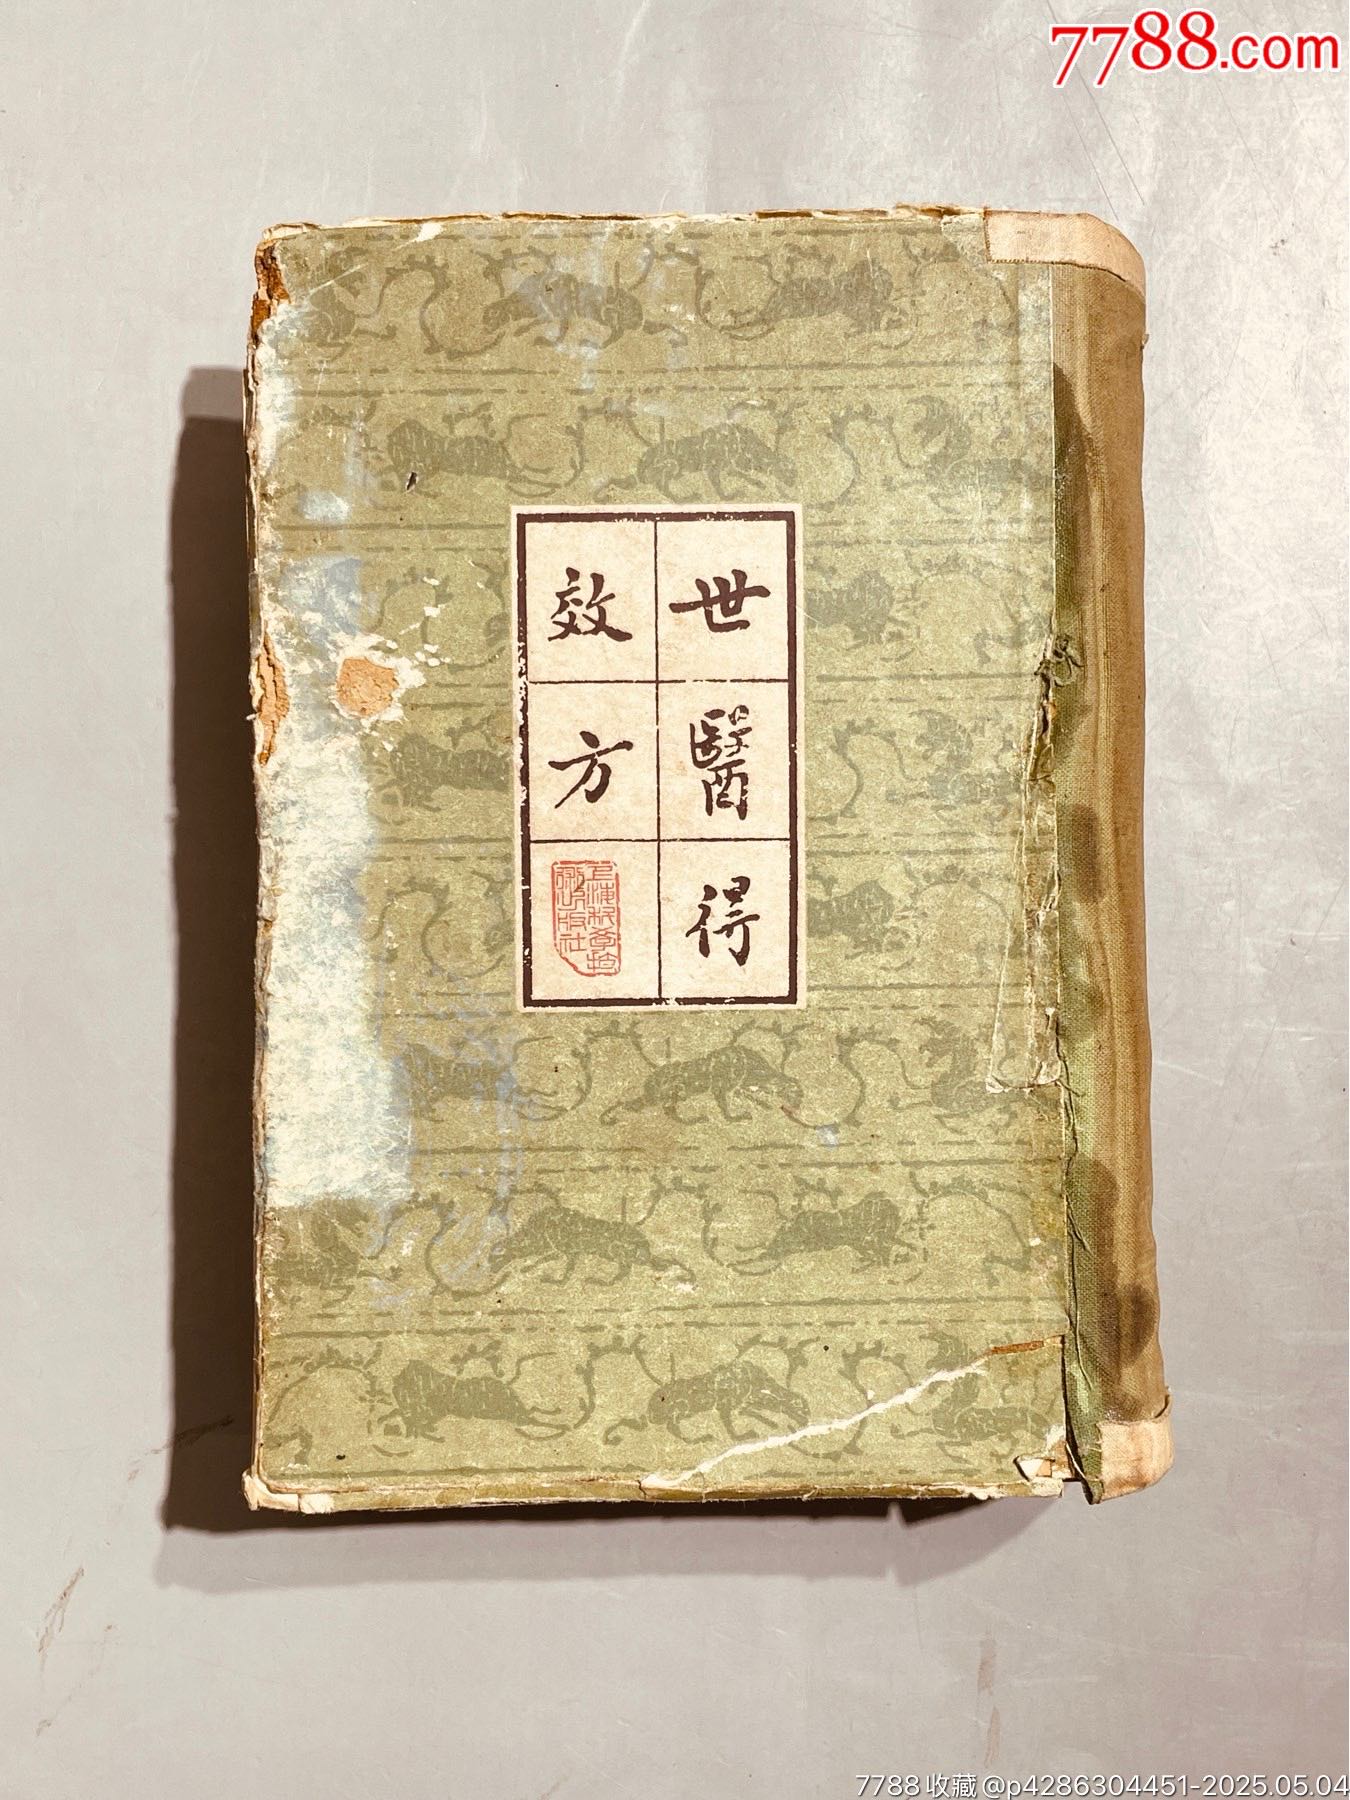 7788.com
世醫得
效方
上海科學技
術出版社
7788收藏@p4286304451-2025.05.04